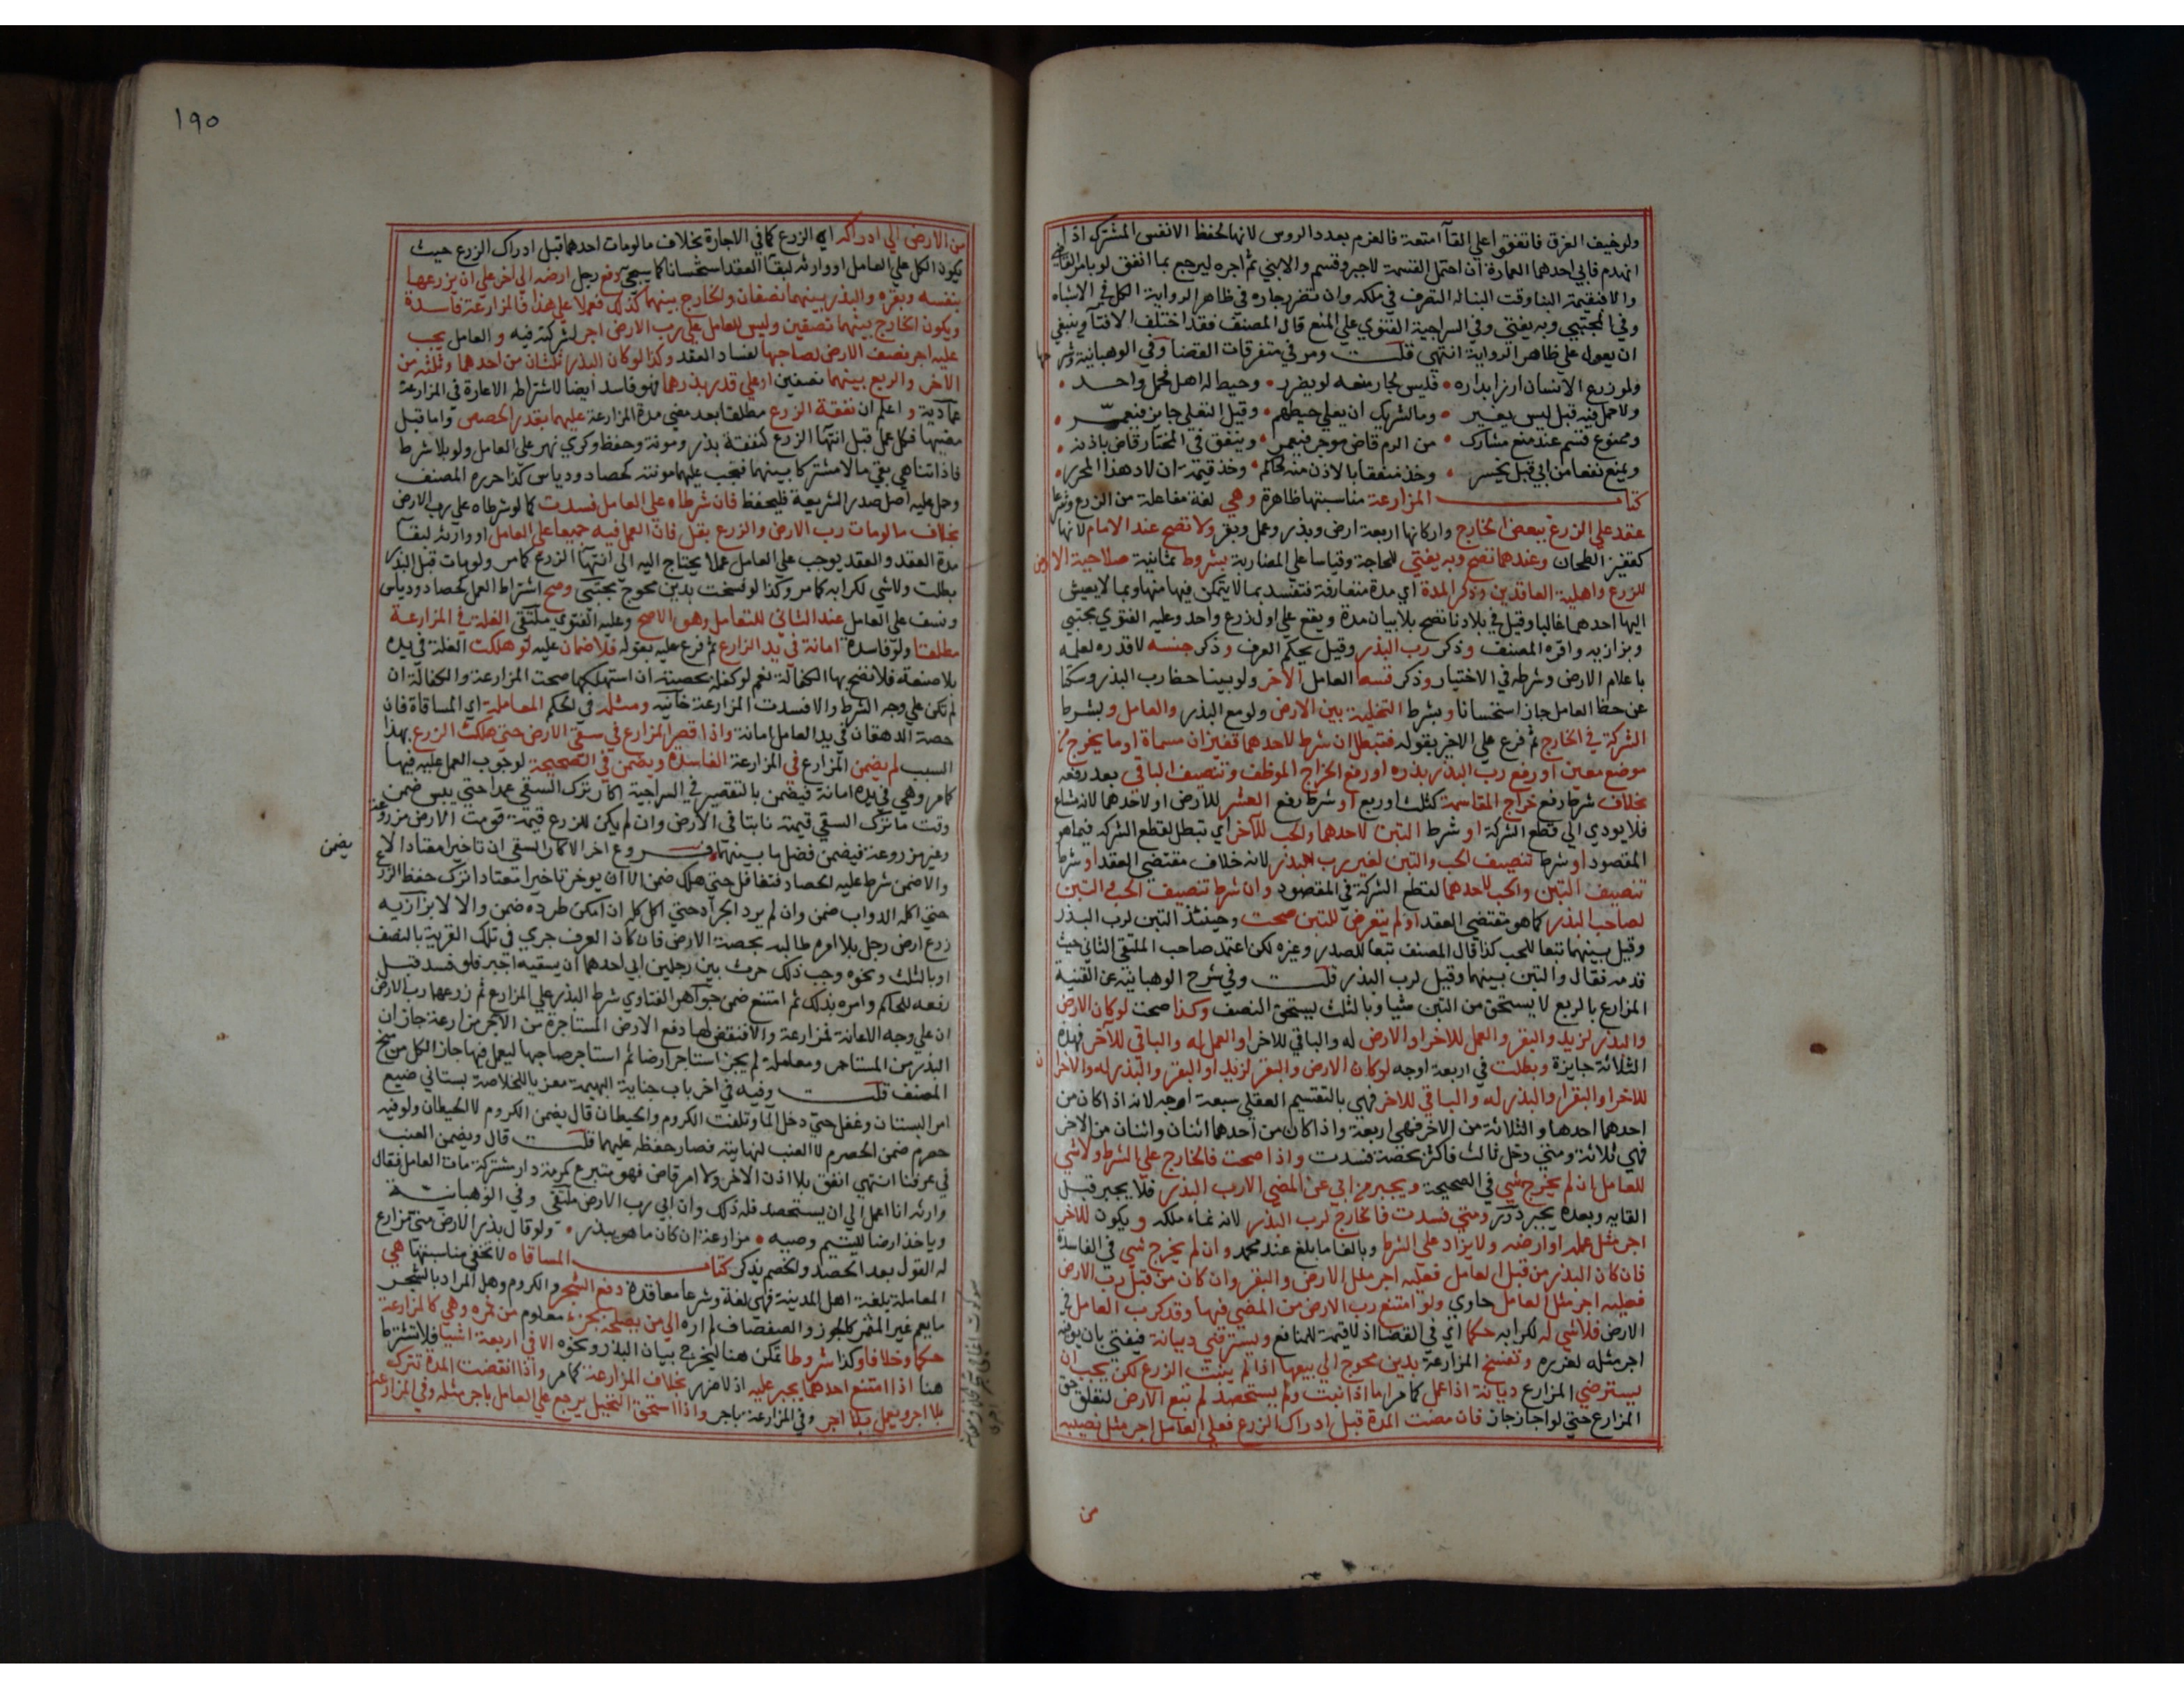 ولو خيف الغرق فاتفقوا على القآ امتعة فالغرم بعدد الروس لانها لحفظ الانفس المشترك اذا
انهدم فابي احدهما العمارة ان احتمل القسمة لا جبر وقسم والا بني ثم اجره ليرجع بما انفق لو بامر القاضي
والا فبقيمة البنا وقت البنا له التصرف في ملكه وان تضرر جاره في ظاهر الرواية الكل في الاشباه
وفي المجتبي وبه يفتي وفي السراجية الفتوي علي المنع قال المصنف فقد اختلف الافتآ وينبغي
ان يعول علي ظاهر الرواية انتهي قلت ومر في متفرقات القضا وفي الوهبانية وشرحها
ولو زرع الانسان ارزا بداره • فليس لجار منعه لو يضرر • وحيط له اهل فحمل واحد •
ولا حمل فيه قبل ليس يغير • وما لشريك ان يعلي حيطهم • وقيل التعلي جايز فيعمر •
وممنوع قسم عند منع مشارك • من الرم قاض موجر فيعمر • وينفق في المختار قاض باذنه •
ويمنع نفعا من ابي قبل يخسر • وخذ منفقا بالاذن منه كحاكم • وخذ قيمة ان لا وهذا المحرر •
كتاب المزارعة مناسبتها ظاهرة وهي لغة مفاعلة من الزرع وشرعا
عقد علي الزرع ببعض الخارج واركانها اربعة ارض وبذر وعمل وبقر ولا تصح عند الامام لانها
كقفيز الطحان وعندهما تصح وبه يفتي للحاجة وقياسا علي المضاربة بشروط ثمانية صلاحية الارض
للزرع واهلية العاقدين وذكر المدة اي مدة متعارفة فتفسد بما لا يتمكن فيها منها وبما لا يعيش
اليها احدهما غالبا وقيل في بلادنا تصح بلا بيان مدة ويقع علي اول زرع واحد وعليه الفتوي مجتبي
وبزازيه واقره المصنف وذكر رب البذر وقيل يحكم العرف وذكر جنسه لا قدره لعلمه
باعلام الارض وشرطه في الاختيار وذكر قسط العامل الآخر ولو بينا حظ رب البذر وسكتا
عن حظ العامل جاز استحسانا وبشرط التخلية بين الارض ولو مع البذر والعامل وبشرط
الشركة في الخارج ثم فرع علي الاخير بقوله فتبطل ان شرط لاحدهما قفيزان مسماة او ما يخرج من
موضع معين او رفع رب البذر بذره او رفع الخراج الموظف وتنصيف الباقي بعد رفعه
بخلاف شرط رفع خراج المقاسمة كثلث او ربع او شرط رفع العشر للارض او لاحدهما لانه مشاع
فلا يودي الي قطع الشركة او شرط التبن لاحدهما والحب للآخر اي تبطل لقطع الشركة فيما هو
المقصود او شرط تنصيف الحب والتبن لغير رب البذر لانه خلاف مقتضي العقد او شرط
تنصيف التبن والحب لاحدهما لقطع الشركة في المقصود وان شرط تنصيف الحب والتبن
لصاحب البذر كما هو مقتضي العقد او لم يتعرض للتبن صحت وحينئذ التبن لرب البذر
وقيل بينهما تبعا للحب كذا قال المصنف تبعا للصدر وغيره لكن اعتمد صاحب الملتقي الثاني حيث
قدمه فقال والتبن بينهما وقيل لرب البذر قلت وفي شرح الوهبانية عن القنية
المزارع بالربع لا يستحق من التبن شيا وبالثلث يستحق النصف وكذا صحت لو كان الارض
والبذر لزيد والبقر والعمل للاخر او الارض له والباقي للاخر او العمل له والباقي للآخر فهذه
الثلاثة جايزة وبطلت في اربعة اوجه لو كان الارض والبقر لزيد او البقر والبذر له والاخران
للاخر او البقر او البذر له والباقي للاخر فهي بالتقسيم العقلي سبعة اوجه لانه اذا كان من
احدهما احدها والثلاثة من الاخر فهي اربعة واذا كان من احدهما اثنان واثنان من الاخر
فهي ثلاثة ومتي دخل ثالث فاكثر بحصة فسدت واذا صحت فالخارج علي الشرط ولا شي
للعامل ان لم يخرج شي في الصحيحة ويجبر من ابي عن المضي الا رب البذر فلا يجبر قبل
القايه وبعده يجبر درر ومتي فسدت فالخارج لرب البذر لانه نماء ملكه ويكون للآخر
اجر مثل عمله او ارضه ولا يزاد علي الشرط وبالغا ما بلغ عند محمد وان لم يخرج شي في الفاسدة
فان كان البذر من قبل العامل فعليه اجر مثل الارض والبقر وان كان من قبل رب الارض
فعليه اجر مثل العامل حاوي ولو امتنع رب الارض من المضي فيها وقد كرب العامل في
الارض فلا شي له لكرابه حكما اي في القضا اذ لا قيمة للمنافع ويسترضي ديانة فيفتي بان يوفيه
اجر مثله لغرره وتفسخ المزارعة بدين محوج الي بيعها اذا لم ينبت الزرع لكن يجب ان
يسترضي المزارع ديانة اذا عمل كما مر اما اذا نبت ولم يستحصد لم تبع الارض لتعلق حق
المزارع حتي لو اجاز جاز فان مضت المدة قبل ادراك الزرع فعلي العامل اجر مثل نصيبه
من
١٩٥
من الارض الي ادراكه اي الزرع كما في الاجارة بخلاف ما لو مات احدهما قبل ادراك الزرع حيث
يكون الكل علي العامل او وارثه لبقآ العقد استحسانا كما سيجي دفع رجل ارضه الي آخر علي ان يزرعها
بنفسه وبقره والبذر بينهما نصفان والخارج بينهما كذلك فعملا علي هذا فالمزارعة فاسدة
ويكون الخارج بينهما نصفين وليس للعامل علي رب الارض اجر لشركته فيه و العامل يجب
عليه اجر نصف الارض لصاحبها لفساد العقد وكذا لو كان البذر ثلثان من احدهما وثلثه من
الاخر والربع بينهما نصفين او علي قدر بذرهما فهو فاسد ايضا لاشتراطه الاعارة في المزارعة
عمادية و اعلم ان نفقة الزرع مطلقا بعد مضي مدة المزارعة عليهما بقدر الحصص واما قبل
مضيها فكل عمل قبل انتهآ الزرع كنفقة بذر ومونة وحفظ وكري نهر علي العامل ولو بلا شرط
فاذا تناهي بقي مالا مشتركا بينهما فتجب عليهما مونته كحصاد ودياس كذا حرره المصنف
وحمل عليه اصل صدر الشريعة فليحفظ فان شرطاه علي العامل فسدت كما لو شرطاه علي رب الارض
بخلاف ما لو مات رب الارض والزرع بقل فان العمل فيه جميعا علي العامل او وارثه لبقآ
مدة العقد والعقد يوجب علي العامل عملا يحتاج اليه الي انتهآ الزرع كما مر ولو مات قبل البذر
بطلت ولا شي لكرابه كما مر وكذا لو فسخت بدين محوج مجتبي وصح اشتراط العمل كحصاد ودياس
ونسف علي العامل عند الثاني للتعامل وهو الاصح وعليه الفتوي ملتقي الغلة في المزارعة
مطلقا ولو فاسدة امانة في يد الزارع ثم فرع عليه بقوله فلا ضمان عليه لو هلكت الغلة في يده
بلا صنعه فلا تصح بها الكفالة نعم لو كفله بحصته ان استهلكها صحت المزارعة والكفالة ان
لم تكن علي وجه الشرط والا فسدت المزارعة خانيه ومثله في الحكم المعاملة اي المساقاة فان
حصة الدهقان في يد العامل امانة واذا قصر المزارع في سقي الارض حتي هلك الزرع بهذا
السبب لم يضمن المزارع في المزارعة الفاسدة ويضمن في الصحيحة لوجوب العمل عليه فيها
كما مر وهي في يده امانة فيضمن بالتقصير في السراجية اكار ترك السقي عمدا حتي يبس ضمن
وقت ما ترك السقي قيمته نابتا في الارض وان لم يكن للزرع قيمة قومت الارض مزروعة
وغير مزروعة فيضمن فضل ما بينهما فروع اخر الاكار السقي ان تاخيرا معتادا لا يضمن
والا ضمن شرط عليه الحصاد فتغافل حتي هلك ضمن الا ان يوخر تاخيرا معتادا ترك حفظ الزرع
حتي اكله الدواب ضمن وان لم يرد الجراد حتي اكل كله ان امكن طرده ضمن والا لا بزازيه
زرع ارض رجل بلا امره طالبه بحصة الارض فان كان العرف جري في تلك القرية بالنصف
او بالثلث ونحوه وجب ذلك حرث بين رجلين ابي احدهما ان يسقيه اجبر فلو فسد قبل
رفعه للحاكم وامره بذلك ثم امتنع ضمن جواهر الفتاوي شرط البذر علي المزارع ثم زرعها رب الارض
ان علي وجه الاعانة فمزارعة والا فنقض لها دفع الارض المستاجرة من الآجر مزارعة جاز ان
البذر من المستاجر ومعاملة لم يجز استاجر ارضا ثم استاجر صاحبها ليعمل فيها جاز الكل من منح
المصنف قلت وفيه في اخر باب جناية البهيمة معزيا للخلاصة بستاني ضيع
امر البستان وغفل حتي دخل المآ وتلفت الكروم والحيطان قال يضمن الكروم لا الحيطان ولو فيه
حصرم ضمن الحصرم لا العنب لنهايته فصار حفظه عليهما قلت قال ويضمن العنب
في عرفنا انتهي انفق بلا اذن الاخر ولا امر قاض فهو متبرع كمرمة دار مشتركة مات العامل فقال
وارثه انا اعمل الي ان يستحصد فله ذلك وان ابي رب الارض ملتقي وفي الوهبانية
وياخذ ارضا لليتيم وصيه • مزارعة ان كان ما هو يبذر • ولو قال بذر الارض مني مزارع
له القول بعد الحصد والخصم يذكر كتاب المساقاه لا تخفي مناسبتها هي
المعاملة بلغة اهل المدينة فهي لغة وشرعا معاقدة دفع الشجر والكروم وهل المراد بالشجر
ما يعم غير المثمر كالجوز والصفصاف لم اره الي من يصلحه بجزء معلوم من ثمره وهي كالمزارعة
حكما وخلافا وكذا شروطا تمكن هنا ليخرج بيان البذر ونحوه الا في اربعة اشيا فلا تشترط
هنا اذا امتنع احدهما يجبر عليه اذ لا ضرر بخلاف المزارعة كما مر واذا انقضت المدة تترك
بلا اجر ويعمل بلا اجر وفي المزارعة باجر واذا استحق النخيل يرجع علي العامل باجر مثله وفي المزارعة